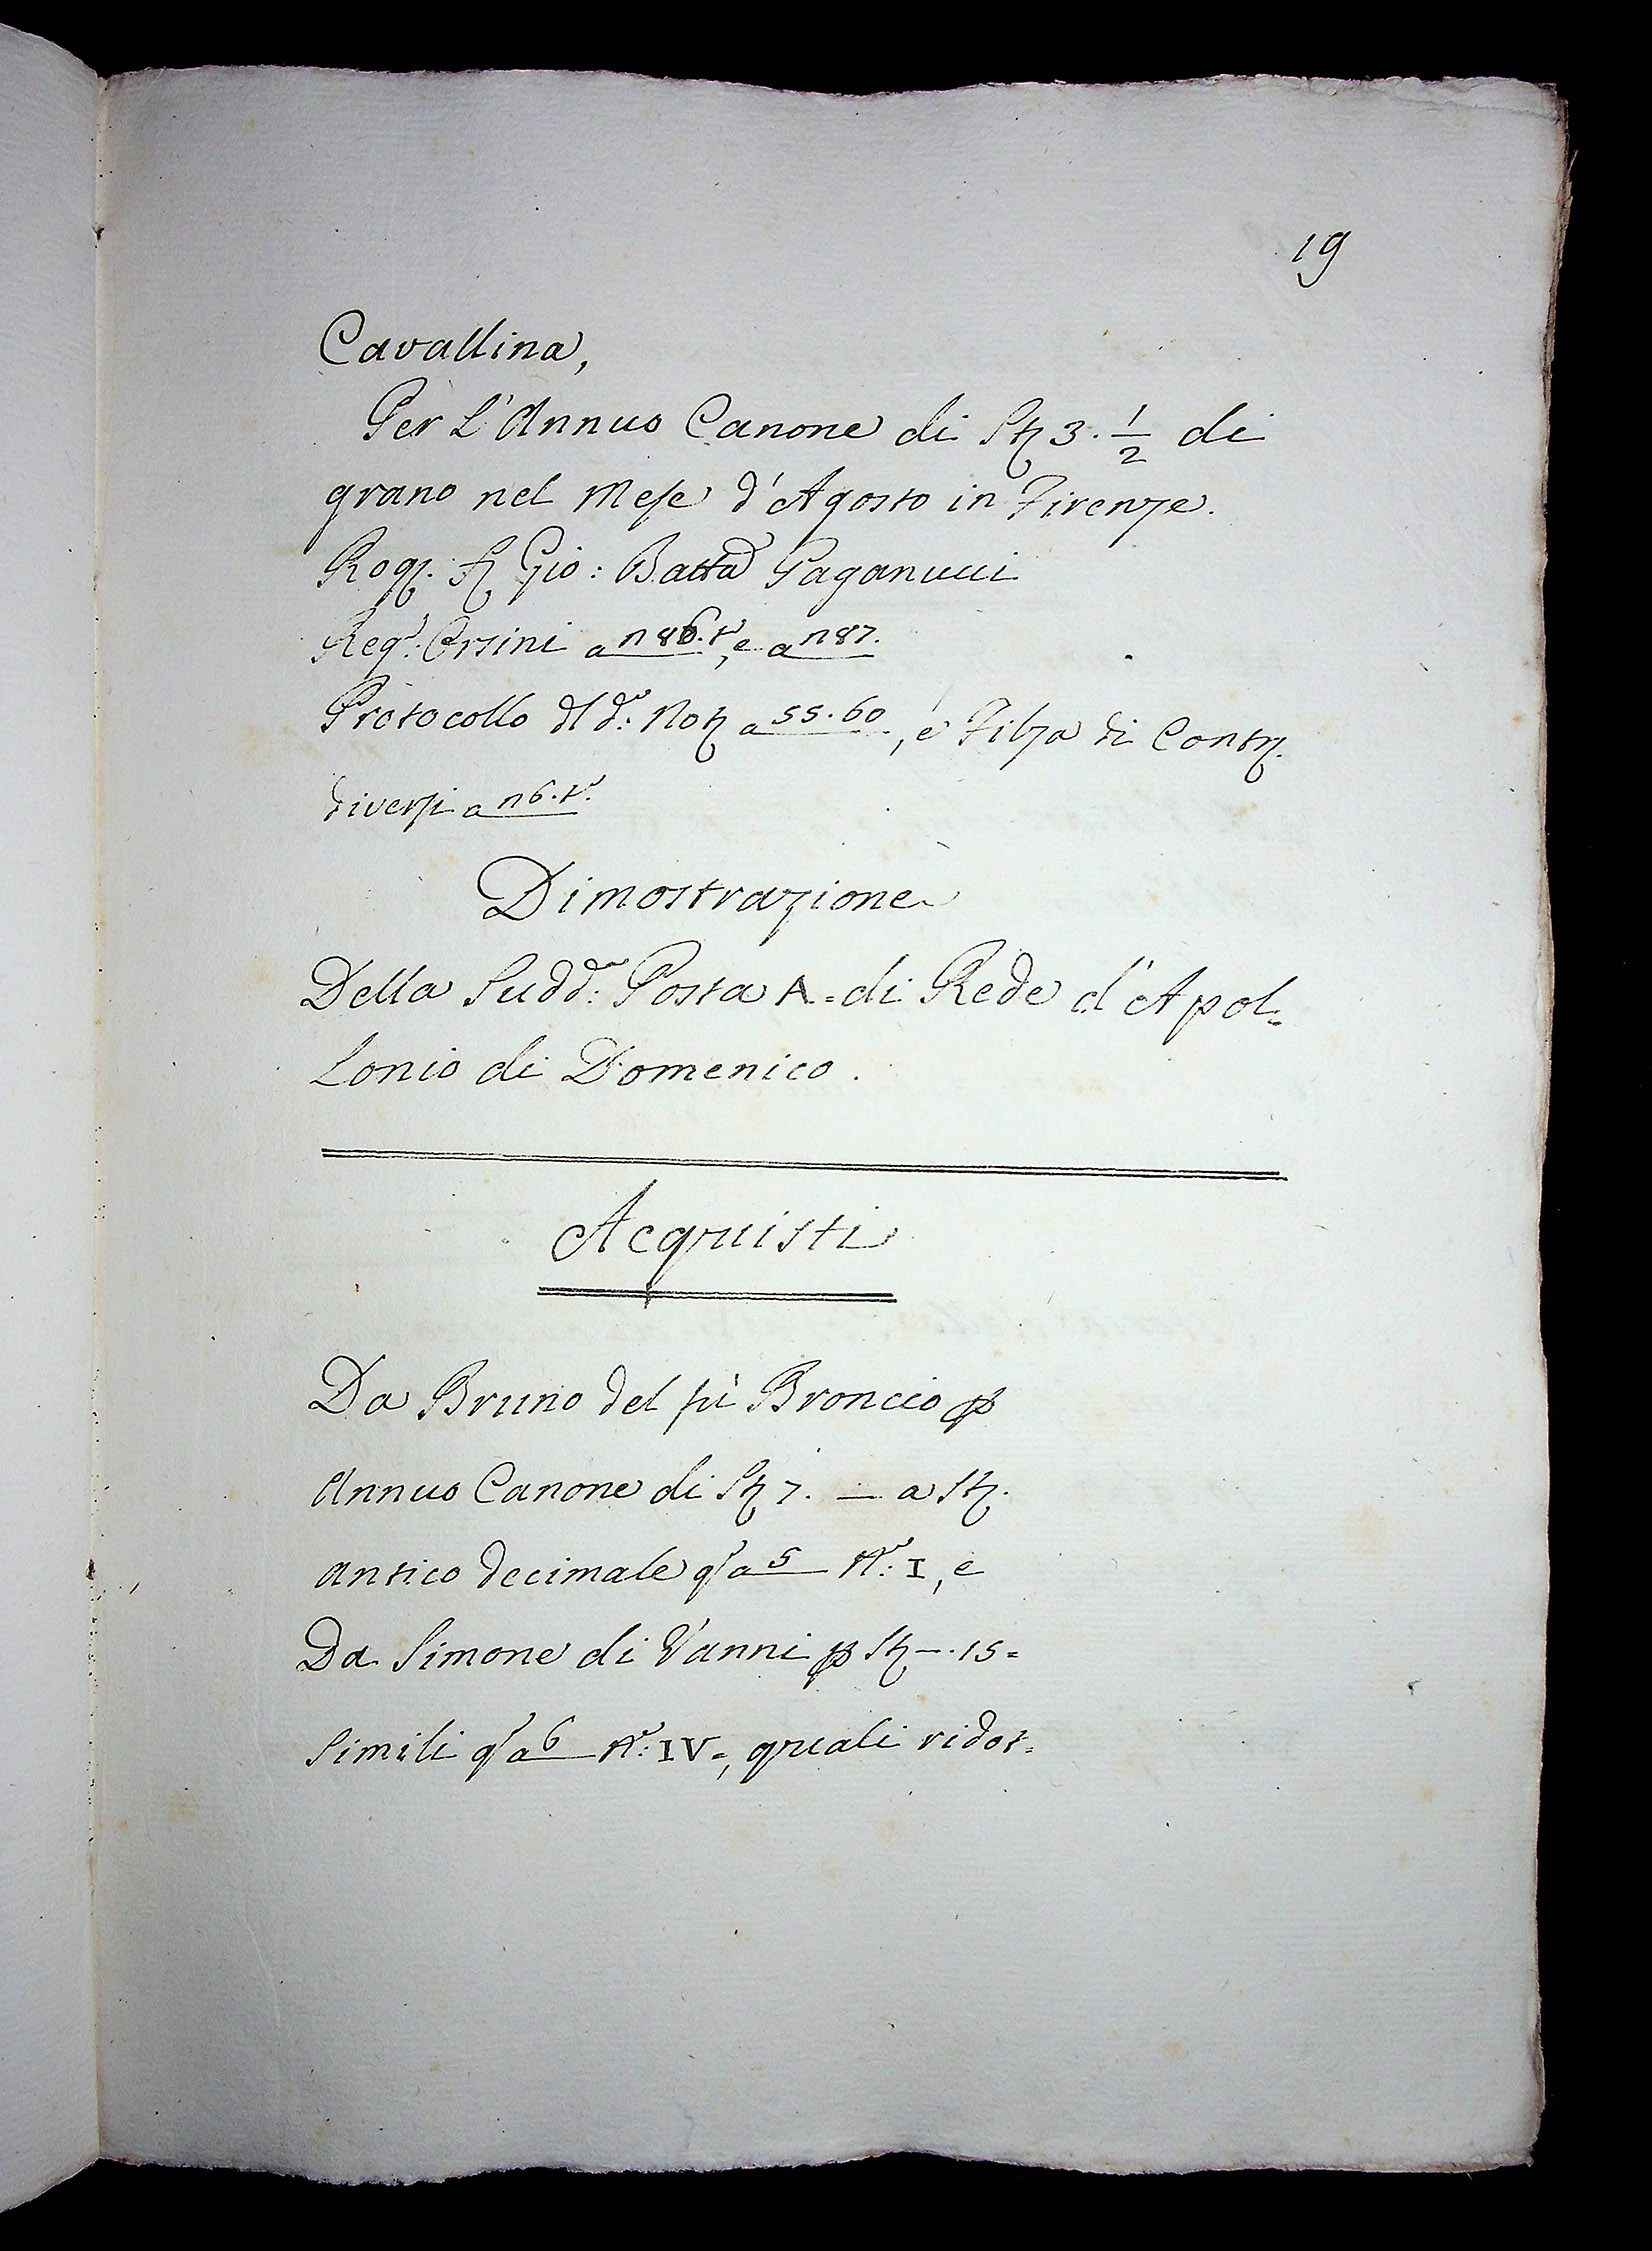 19
Cavallina,
Per L'Annuo Canone di St 3. 1/2 di
grano nel Mese d'Agosto in Firenze.
Rog. Gio: Batta Paganucci
Reg.o: Orsini a n 86.to, e a n 87.
Protocollo dl d.o: Not a 55.60, e Filza di Contr.
diversi a n 6.to.
Dimostrazione
Della Sudd.a: Posta A = di Rede d'Apol=
Lonio di Domenico.
Acquisti
Da Bruno del fù Broncio p
Annuo Canone di St 7. — a St.
Antico decimale q.o a 5 N.o: I, e
Da Simone di Vanni p St —. 15 =
Simili q.o a 6 N.o: IV =, quali ridot=